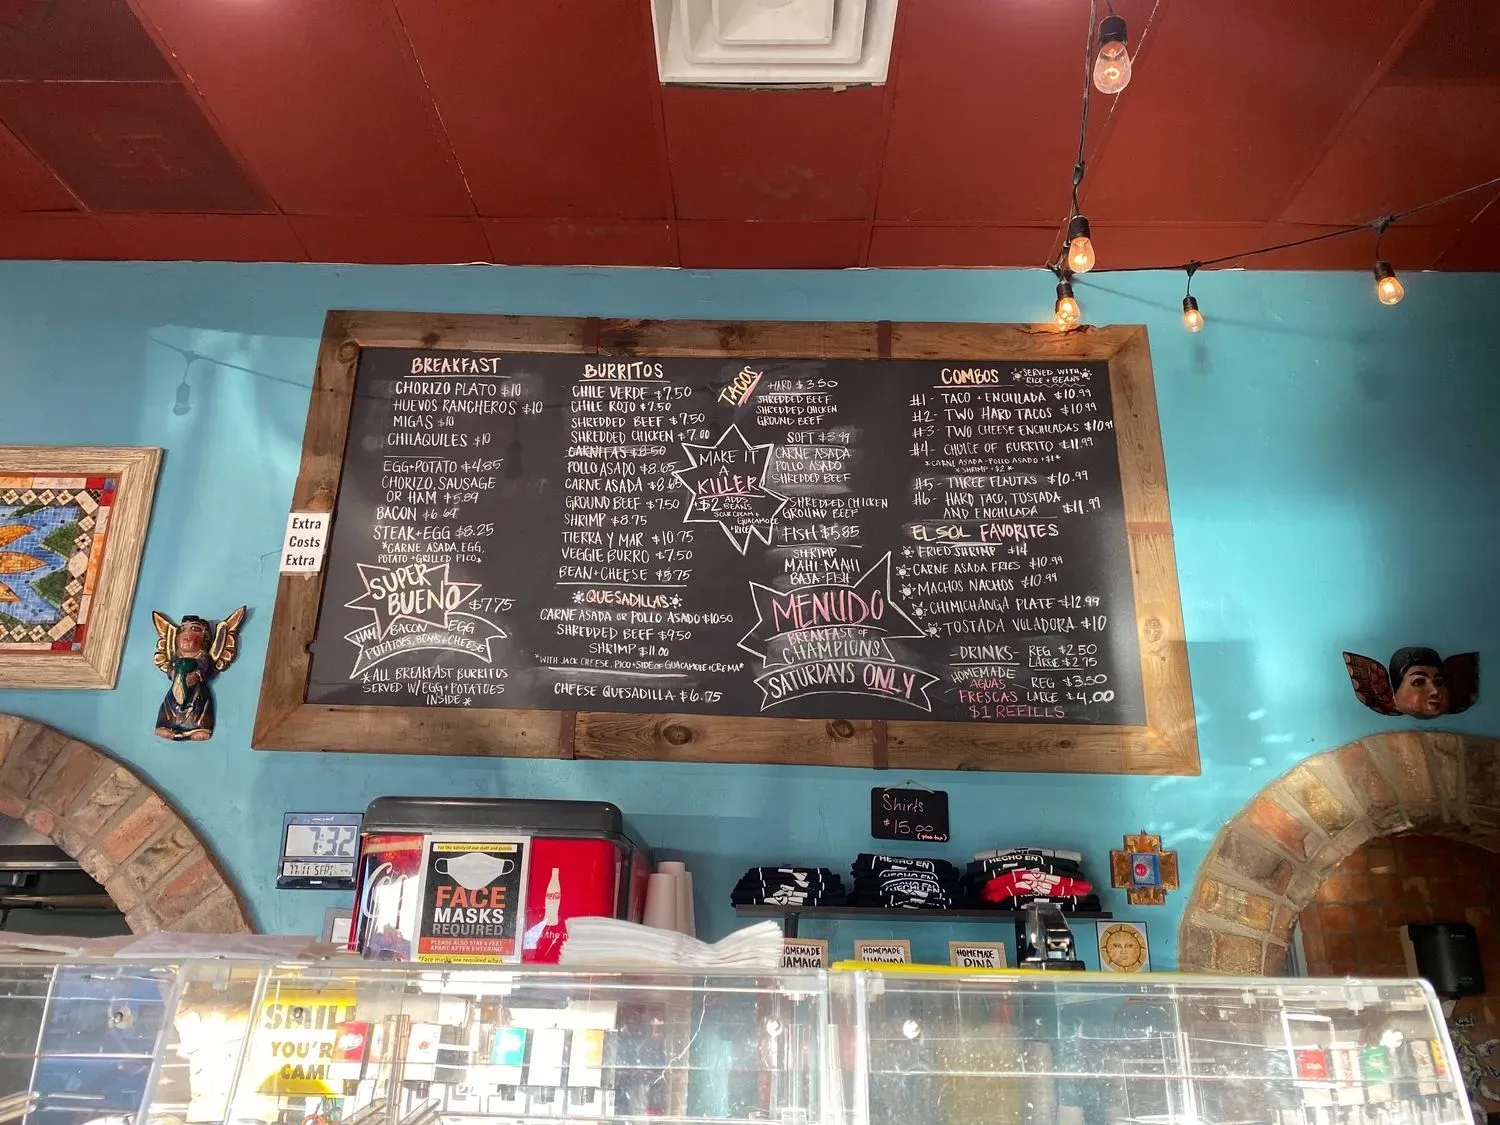 BREAKFAST
CHORIZO PLATO $10
HUEVOS RANCHEROS $10
MIGAS $10
CHILAQUILES $10
EGG+POTATO $4.85
CHORIZO, SAUSAGE
OR HAM $5.89
BACON $6.69
STEAK+EGG $8.25
*CARNE ASADA, EGG,
POTATO +GRILLED PICO*
SUPER
BUENO
$7.75
HAM BACON EGG
POTATOES, BEANS+CHEESE
*ALL BREAKFAST BURRITOS
SERVED W/EGG+POTATOES
INSIDE*
BURRITOS
CHILE VERDE $7.50
CHILE ROJO $7.50
SHREDDED BEEF $7.50
SHREDDED CHICKEN $7.00
CARNITAS $8.50
POLLO ASADO $8.65
CARNE ASADA $8.65
GROUND BEEF $7.50
SHRIMP $8.75
TIERRA Y MAR $10.75
VEGGIE BURRO $7.50
BEAN+CHEESE $5.75
QUESADILLAS
CARNE ASADA OR POLLO ASADO $10.50
SHREDDED BEEF $9.50
SHRIMP $11.00
*WITH JACK CHEESE, PICO+SIDE OF GUACAMOLE+CREMA*
CHEESE QUESADILLA $6.75
MAKE IT
A
KILLER
$2 ADDS:
BEANS
SOUR CREAM+
GUACAMOLE
+RICE
TACOS
HARD $3.50
SHREDDED BEEF
SHREDDED CHICKEN
GROUND BEEF
SOFT $3.99
CARNE ASADA
POLLO ASADO
SHREDDED BEEF
SHREDDED CHICKEN
GROUND BEEF
FISH $5.85
SHRIMP
MAHI-MAHI
BAJA-FISH
MENUDO
BREAKFAST OF
CHAMPIONS
SATURDAYS ONLY
COMBOS
SERVED WITH
RICE + BEANS
#1- TACO + ENCHILADA $10.99
#2- TWO HARD TACOS $10.99
#3- TWO CHEESE ENCHILADAS $10.99
#4- CHOICE OF BURRITO $11.99
*CARNE ASADA-POLLO ASADO +$1*
*SHRIMP +$2*
#5- THREE FLAUTAS $10.99
#6- HARD TACO, TOSTADA
AND ENCHILADA $11.99
EL SOL FAVORITES
FRIED SHRIMP $14
CARNE ASADA FRIES $10.99
MACHOS NACHOS $10.99
CHIMICHANGA PLATE $12.99
TOSTADA VULADORA $10
-DRINKS- REG $2.50
LARGE $2.75
HOMEMADE
AGUAS
FRESCAS
REG $3.50
LARGE $4.00
$1 REFILLS
Extra
Costs
Extra
Shirts
$15.00
(plus tax)
7:32
For the safety of our staff and guests
FACE
MASKS
REQUIRED
PLEASE ALSO STAY 6 FEET
APART AFTER ENTERING
*Face masks are required when
HECHO EN
HECHO EN
HECHO EN
HECHO EN
HOMEMADE
JAMAICA
HOMEMADE
LIMONADA
HOMEMADE
PINA
SMIL
YOU'R
CAM